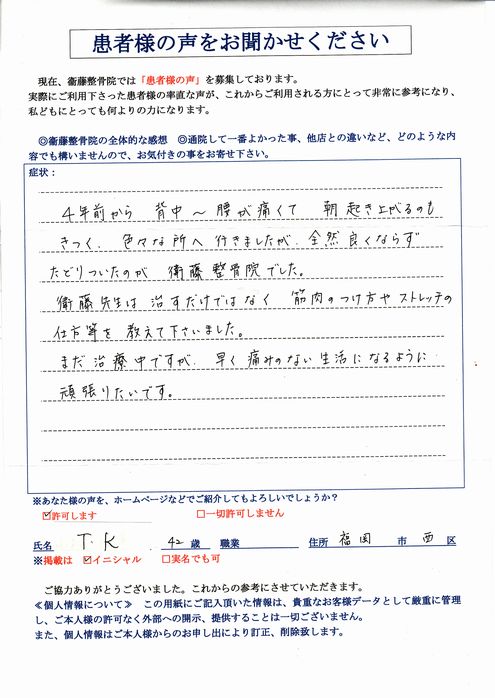 患者様の声をお聞かせください
現在、衞藤整骨院では「患者様の声」を募集しております。
実際にご利用下さった患者様の率直な声が、これからご利用される方にとって非常に参考になり、
私どもにとっても何よりの力になります。
◎衞藤整骨院の全体的な感想　◎通院して一番よかった事、他店との違いなど、どのような内
容でも構いませんので、お気付きの事をお寄せ下さい。
症状：
4年前から 背中〜腰が痛くて 朝起き上がるのも
きつく、色々な所へ行きましたが、全然良くならず
たどりついたのが 衛藤整骨院でした。
衛藤先生は 治すだけではなく 筋肉のつけ方や ストレッチの
仕方等を 教えて下さいました。
まだ治療中ですが、早く痛みのない生活になるように
頑張りたいです。
※あなた様の声を、ホームページなどでご紹介してもよろしいでしょうか？
☑許可します　□一切許可しません
氏名 T.K 42 歳 職業 住所 福岡 市 西 区
※掲載は ☑イニシャル □実名でも可
ご協力ありがとうございました。これからの参考にさせていただきます。
≪個人情報について≫　この用紙にご記入頂いた情報は、貴重なお客様データとして厳重に管理
し、ご本人様の許可なく外部への開示、提供することは一切ございません。
また、個人情報はご本人様からのお申し出により訂正、削除致します。